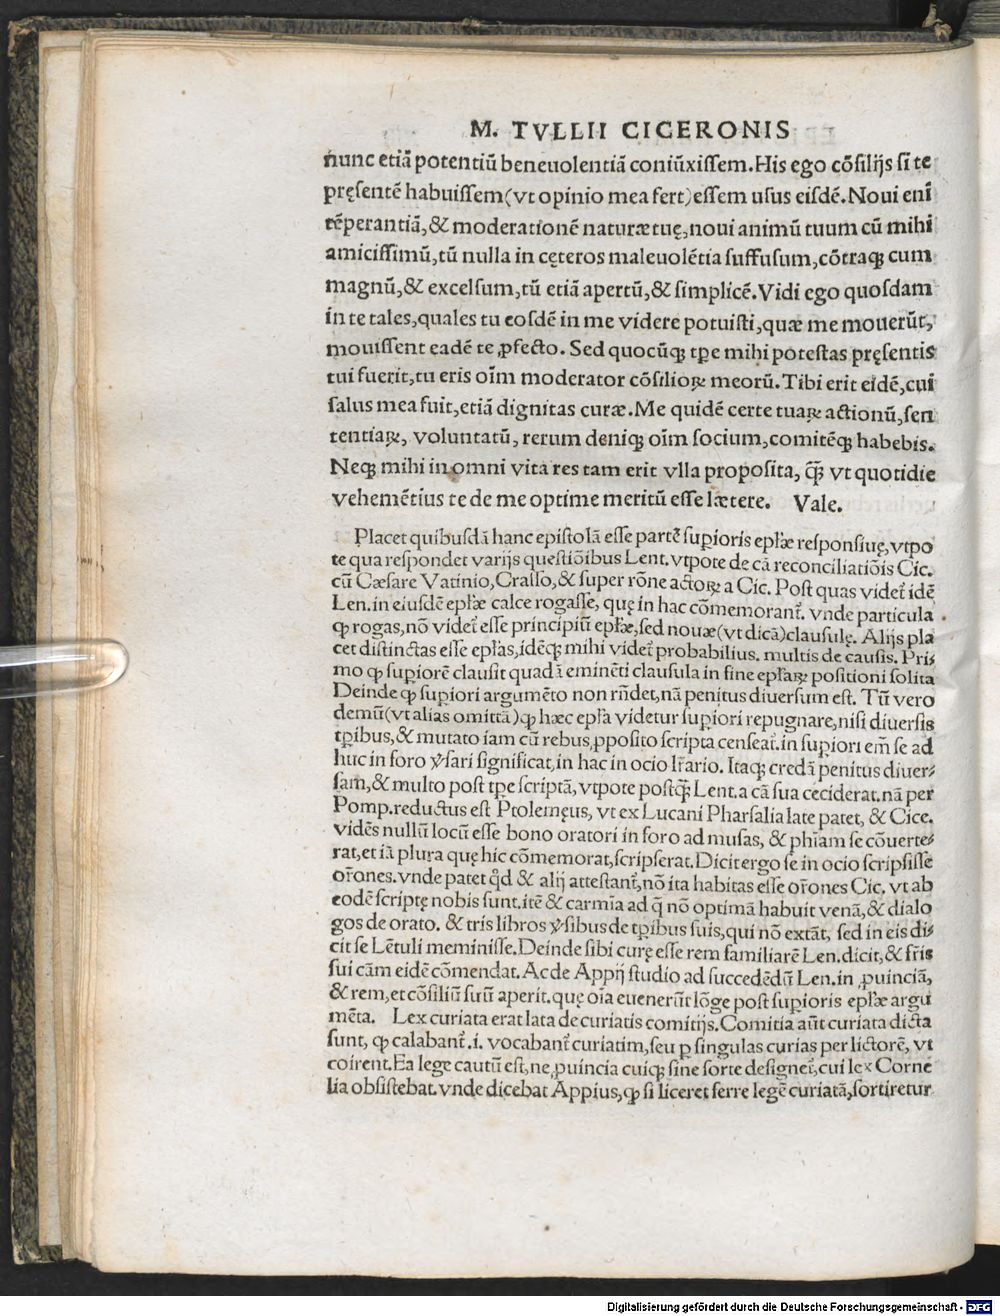 M. TVLLII CICERONIS
nunc etiã potentiũ beneuolentiã coniũxissem. His ego cõsilijs si te
pręsentẽ habuissem (vt opinio mea fert) essem usus eisdẽ. Noui enĩ
tẽperantiã, & moderationẽ naturæ tuę, noui animũ tuum cũ mihi
amicissimũ, tũ nulla in cęteros maleuolẽtia suffusum, cõtraq; cum
magnũ, & excelsum, tũ etiã apertũ, & simplicẽ. Vidi ego quosdam
in te tales, quales tu eosdẽ in me videre potuisti, quæ me mouerũt,
mouissent eadẽ te ꝓfecto. Sed quocũq; tꝑe mihi potestas pręsentis
tui fuerit, tu eris oĩm moderator cõsilioꝝ meorũ. Tibi erit eidẽ, cui
salus mea fuit, etiã dignitas curæ. Me quidẽ certe tuaꝝ actionũ, sen
tentiaꝝ, voluntatũ, rerum deniq; oĩm socium, comitẽq; habebis.
Neq; mihi in omni vita res tam erit vlla proposita, q̃ȝ vt quotidie
vehemẽtius te de me optime meritũ esse lætere. Vale.
Placet quibusdã hanc epistolã esse partẽ supioris epl̃æ responsiuę, vtpo
te qua respondet varijs questiõibus Lent. vtpote de cã reconciliatiõis Cic.
cũ Cæsare Vatinio, Crasso, & super rõne actoꝝ a Cic. Post quas videt̃ idẽ
Len. in eiusdẽ epl̃æ calce rogasse, quę in hac cõmemorant̃. vnde particula
ꝙ rogas, nõ videt̃ esse principiũ epl̃æ, sed nouæ (vt dicã) clausulę. Alijs pla
cet distinctas esse epl̃as, idẽq; mihi videt̃ probabilius. multis de causis. Pri⸗
mo ꝙ supiorẽ clausit quadã eminẽti clausula in fine epl̃aꝝ positioni solita
Deinde ꝙ supiori argumẽto non rñdet, nã penitus diuersum est. Tũ vero
demũ (vt alias omittã) ꝙ hæc epl̃a videtur supiori repugnare, nisi diuersis
tꝑibus, & mutato iam cũ rebus ꝓposito scripta censeat̃. in supiori em̃ se ad
huc in foro ꝟsari significat, in hac in ocio lr̃ario. Itaq; credã penitus diuer⸗
sam, & multo post tꝑe scriptã, vtpote postq̃ȝ Lent. a cã sua ceciderat. nã per
Pomp. reductus est Ptolemęus, vt ex Lucani Pharsalia late patet, & Cice.
vidẽs nullũ locũ esse bono oratori in foro ad musas, & phĩam se cõuerte⸗
rat, et iã plura quę hic cõmemorat, scripserat. Dicit ergo se in ocio scripsisse
or̃ones. vnde patet qd̃ & alij attestant̃, nõ ita habitas esse or̃ones Cic. vt ab
eodẽ scriptę nobis sunt. itẽ & carmĩa ad q̃ nõ optimã habuit venã, & dialo
gos de orato. & tris libros ꝟsibus de tꝑibus suis, qui nõ extãt, sed in eis di⸗
cit se Lẽtuli meminisse. Deinde sibi curę esse rem familiarẽ Len. dicit, & fr̃is
sui cãm eidẽ cõmendat. Ac de Appij studio ad succedẽdũ Len. in ꝓuinciã,
& rem, et cõsiliũ suũ aperit. quę oĩa euenerũt lõge post supioris epl̃æ argu
mẽta. Lex curiata erat lata de curiatis comitijs. Comitia aũt curiata dicta
sunt, ꝙ calabant̃ .i. vocabant̃ curiatim, seu ꝑ singulas curias per lictorẽ, vt
coirent. Ea lege cautũ est, ne ꝓuincia cuiq; sine sorte designet̃, cui lex Corne
lia obsistebat. vnde dicebat Appius, ꝙ si liceret ferre legẽ curiatã, sortiretur
Digitalisierung gefördert durch die Deutsche Forschungsgemeinschaft - DFG